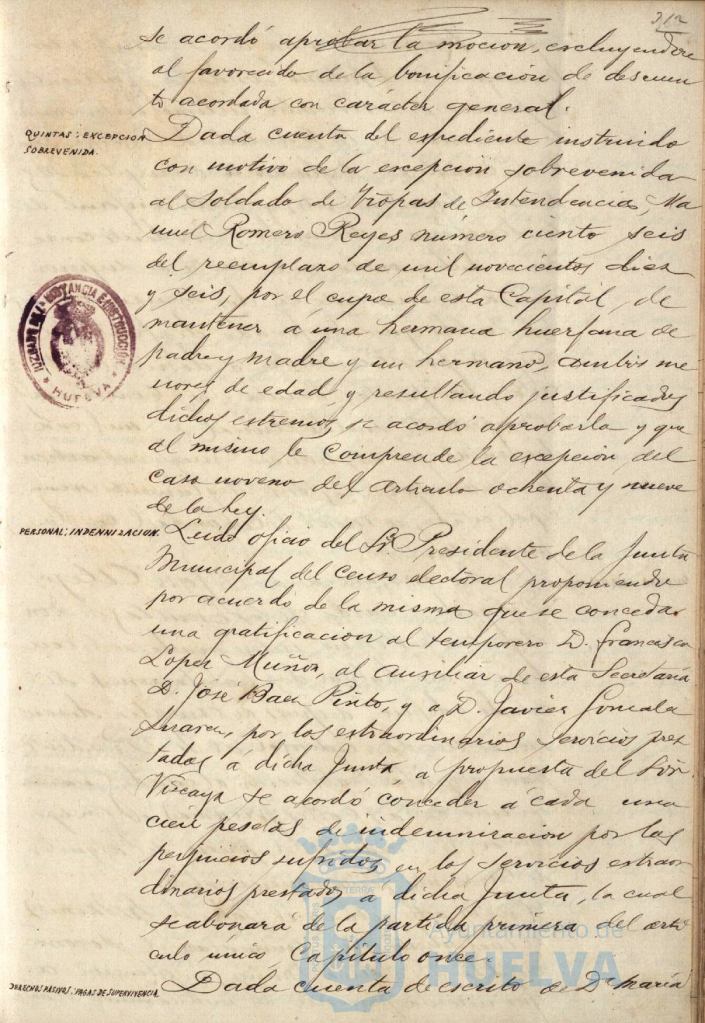 312
se acordó aprobar la moción, excluyendose
al favorecido de la bonificación de descuen
to acordada con carácter general.
QUINTAS: EXCEPCION
SOBREVENIDA.
Dada cuenta del expediente instruido
con motivo de la excepción sobrevenida
al soldado de Tropas de Intendencia, Ma
nuel Romero Reyes número ciento seis
del reemplazo de mil novecientos diez
y seis, por el cupo de esta Capital, de
mantener á una hermana huerfana de
padre y madre y un hermano, ambos me
nores de edad y resultando justificados
dichos extremos, se acordó aprobarla y que
al mismo le comprende la excepción del
caso noveno del artículo ochenta y nueve
de la ley.
JUZGADO DE 1ª INSTANCIA E INSTRUCCIÓN
* HUELVA *
PERSONAL: INDEMNIZACION.
Leido oficio del Sr. Presidente de la Junta
Municipal del Censo electoral proponiendo
por acuerdo de la misma que se conceda
una gratificación al temporero D. Francisco
Lopez Muñoz, al Auxiliar de esta Secretaría
D. José Baen Pinto, y a D. Javier Gonzala
por los extraordinarios servicios pres
tados á dicha Junta, á propuesta del Sor.
Vizcaya se acordó conceder á cada uno
cien pesetas de indemnizacion por los
perjuicios sufridos en los servicios extraor
dinarios prestados a dicha Junta, la cual
se abonará de la partida primera del artí
culo único, Capítulo once.
Ayuntamiento de
HUELVA
DERECHOS PASIVOS: PAGAS DE SUPERVIVENCIA.
Dada cuenta de escrito de Dª María